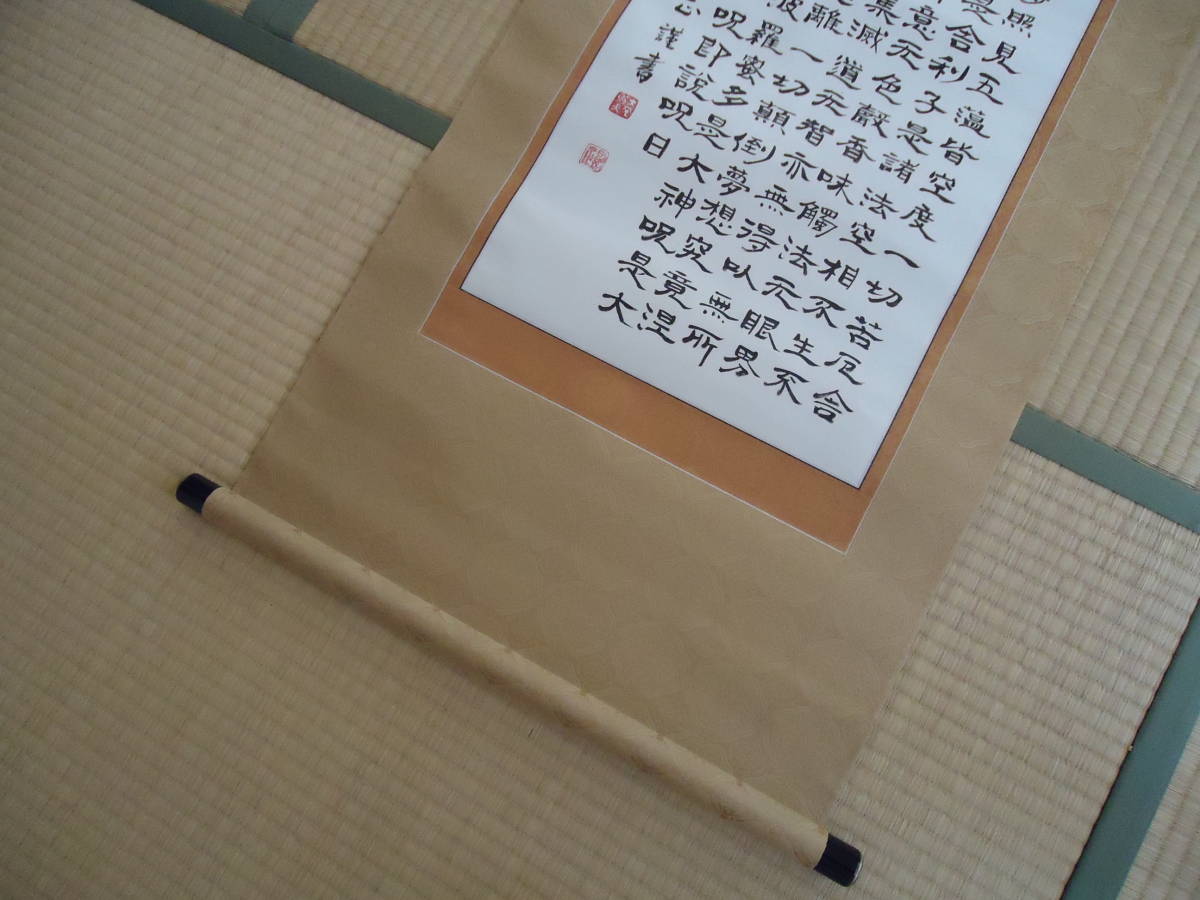 照見五蘊皆空度一切苦厄舍
是舍利子是諸法空相不生不
意无色聲香味觸法无眼界
集滅道无智亦無得以無所
離一切顛倒夢想究竟涅
波羅蜜多是大神呪是大
呪即說呪曰
謹書